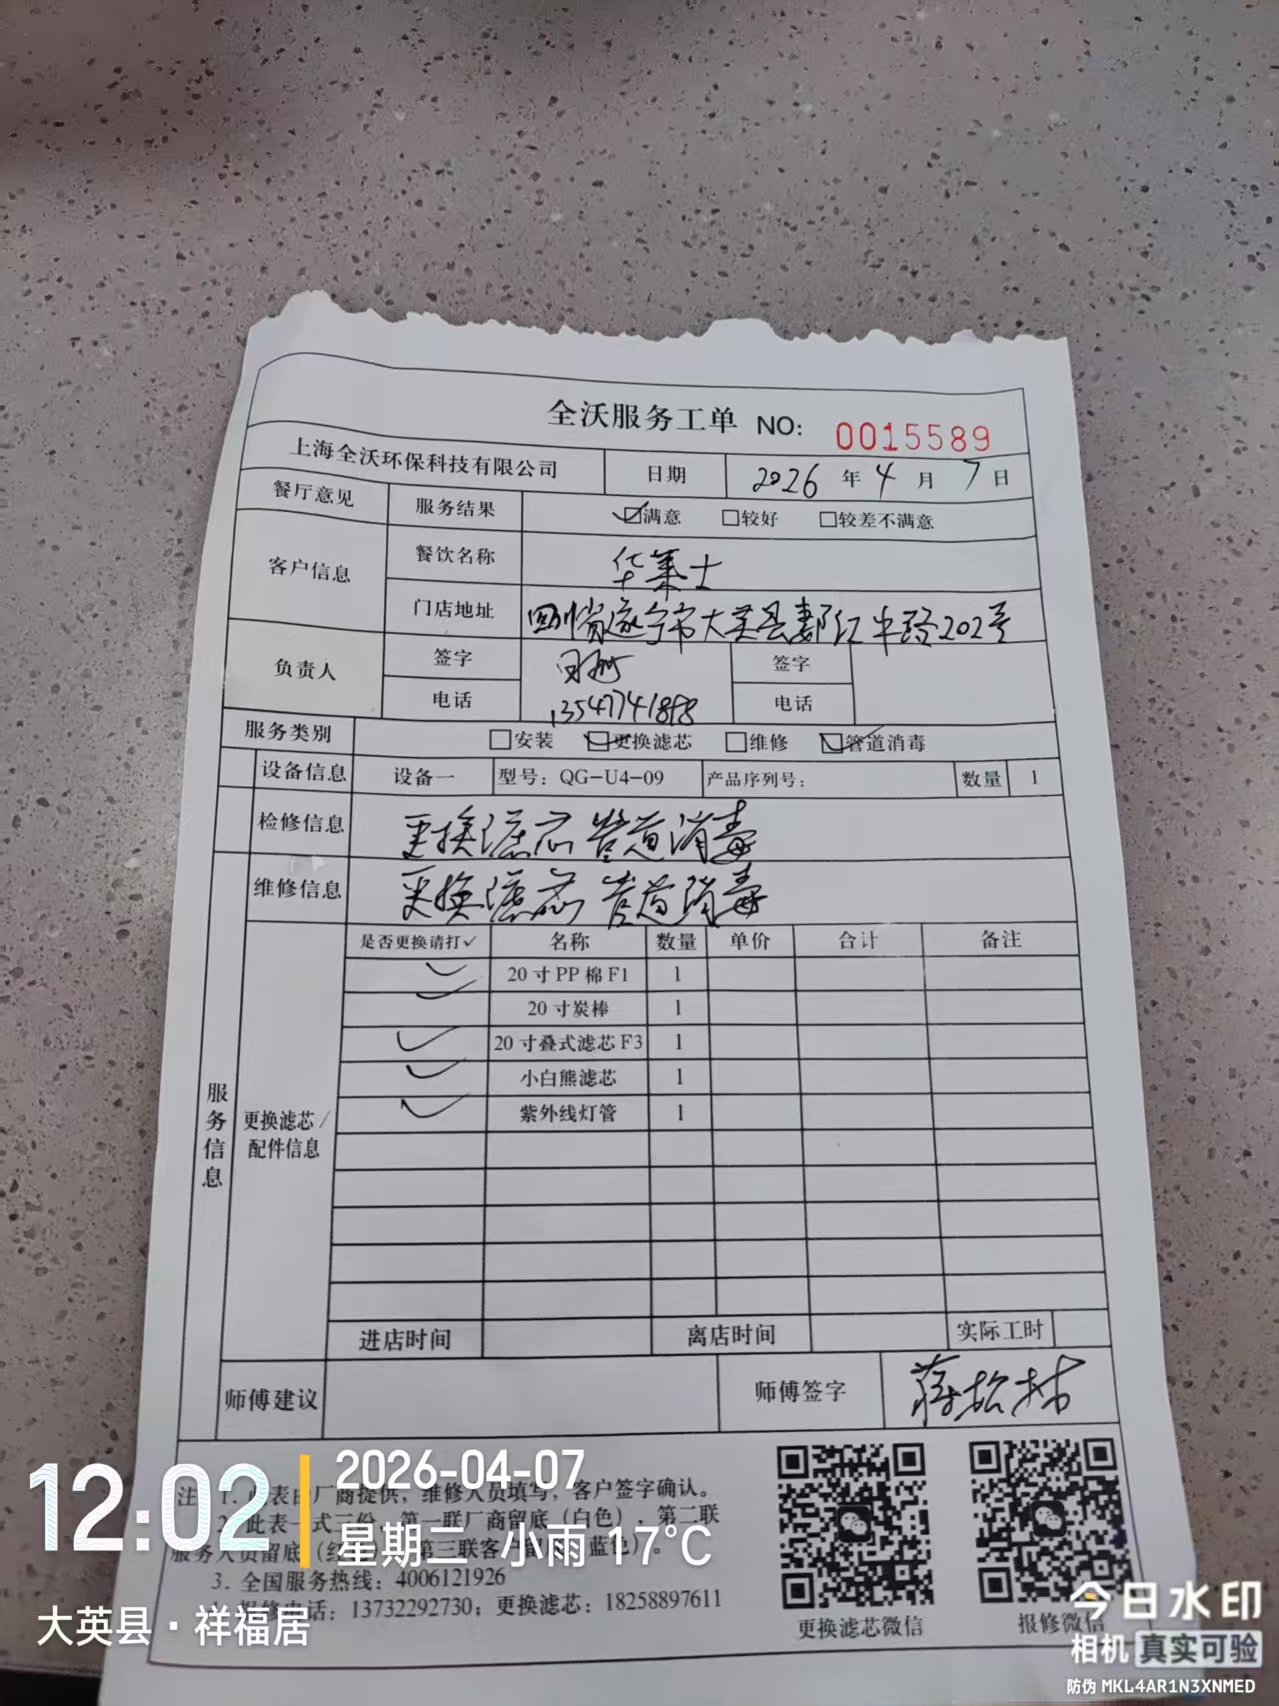 全沃服务工单 NO: 0015589
上海全沃环保科技有限公司 日期 2026 年 4 月 7 日
餐厅意见 服务结果 ☑满意 □较好 □较差不满意
客户信息 餐饮名称 华莱士
门店地址 四川省遂宁市大英县郪江中路202号
负责人 签字 签字
电话 13547741888 电话
服务类别 □安装 ☑更换滤芯 □维修 ☑管道消毒
设备信息 设备一 型号：QG-U4-09 产品序列号： 数量 1
检修信息 更换滤芯 管道消毒
维修信息 更换滤芯 管道消毒
服务信息
更换滤芯/配件信息
是否更换请打✓ 名称 数量 单价 合计 备注
✓ 20寸PP棉F1 1
✓ 20寸炭棒 1
✓ 20寸叠式滤芯F3 1
✓ 小白熊滤芯 1
✓ 紫外线灯管 1
进店时间 离店时间 实际工时
师傅建议 师傅签字 蒋松林
注 1. 此表由厂商提供，维修人员填写，客户签字确认。
2. 此表一式三份，第一联厂商留底（白色），第二联
服务人员留底（红 第三联客户留 蓝色）。
3. 全国服务热线：4006121926
报修电话：13732292730；更换滤芯：18258897611
更换滤芯微信 报修微信
12:02
2026-04-07
星期二 小雨 17℃
大英县·祥福居
今日水印
相机 真实可验
防伪 MKL4AR1N3XNMED